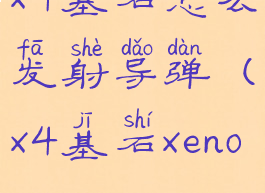 x4基石怎么
fā shè dǎo dàn
发射导弹（
jī shí
x4基石xeno